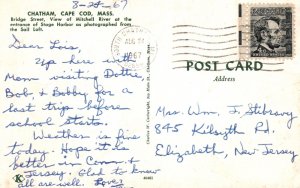 8-28-67
CHATHAM, CAPE COD, MASS.
Bridge Street, View of Mitchell River at the
entrance of Stage Harbor as photographed from
the Sail Loft.
Dear Lois,
Up here with
Mom visiting Dottie,
Bob & Bobby for a
last trip before
school starts.
Weather is fine
today. Hope it is
better in Conn. &
Jersey. Glad to know
all are well. Love,
AUG
1967
POST CARD
Address
Mrs. Wm. F.
845 Kilsyth Rd.
Elizabeth, New Jersey
K